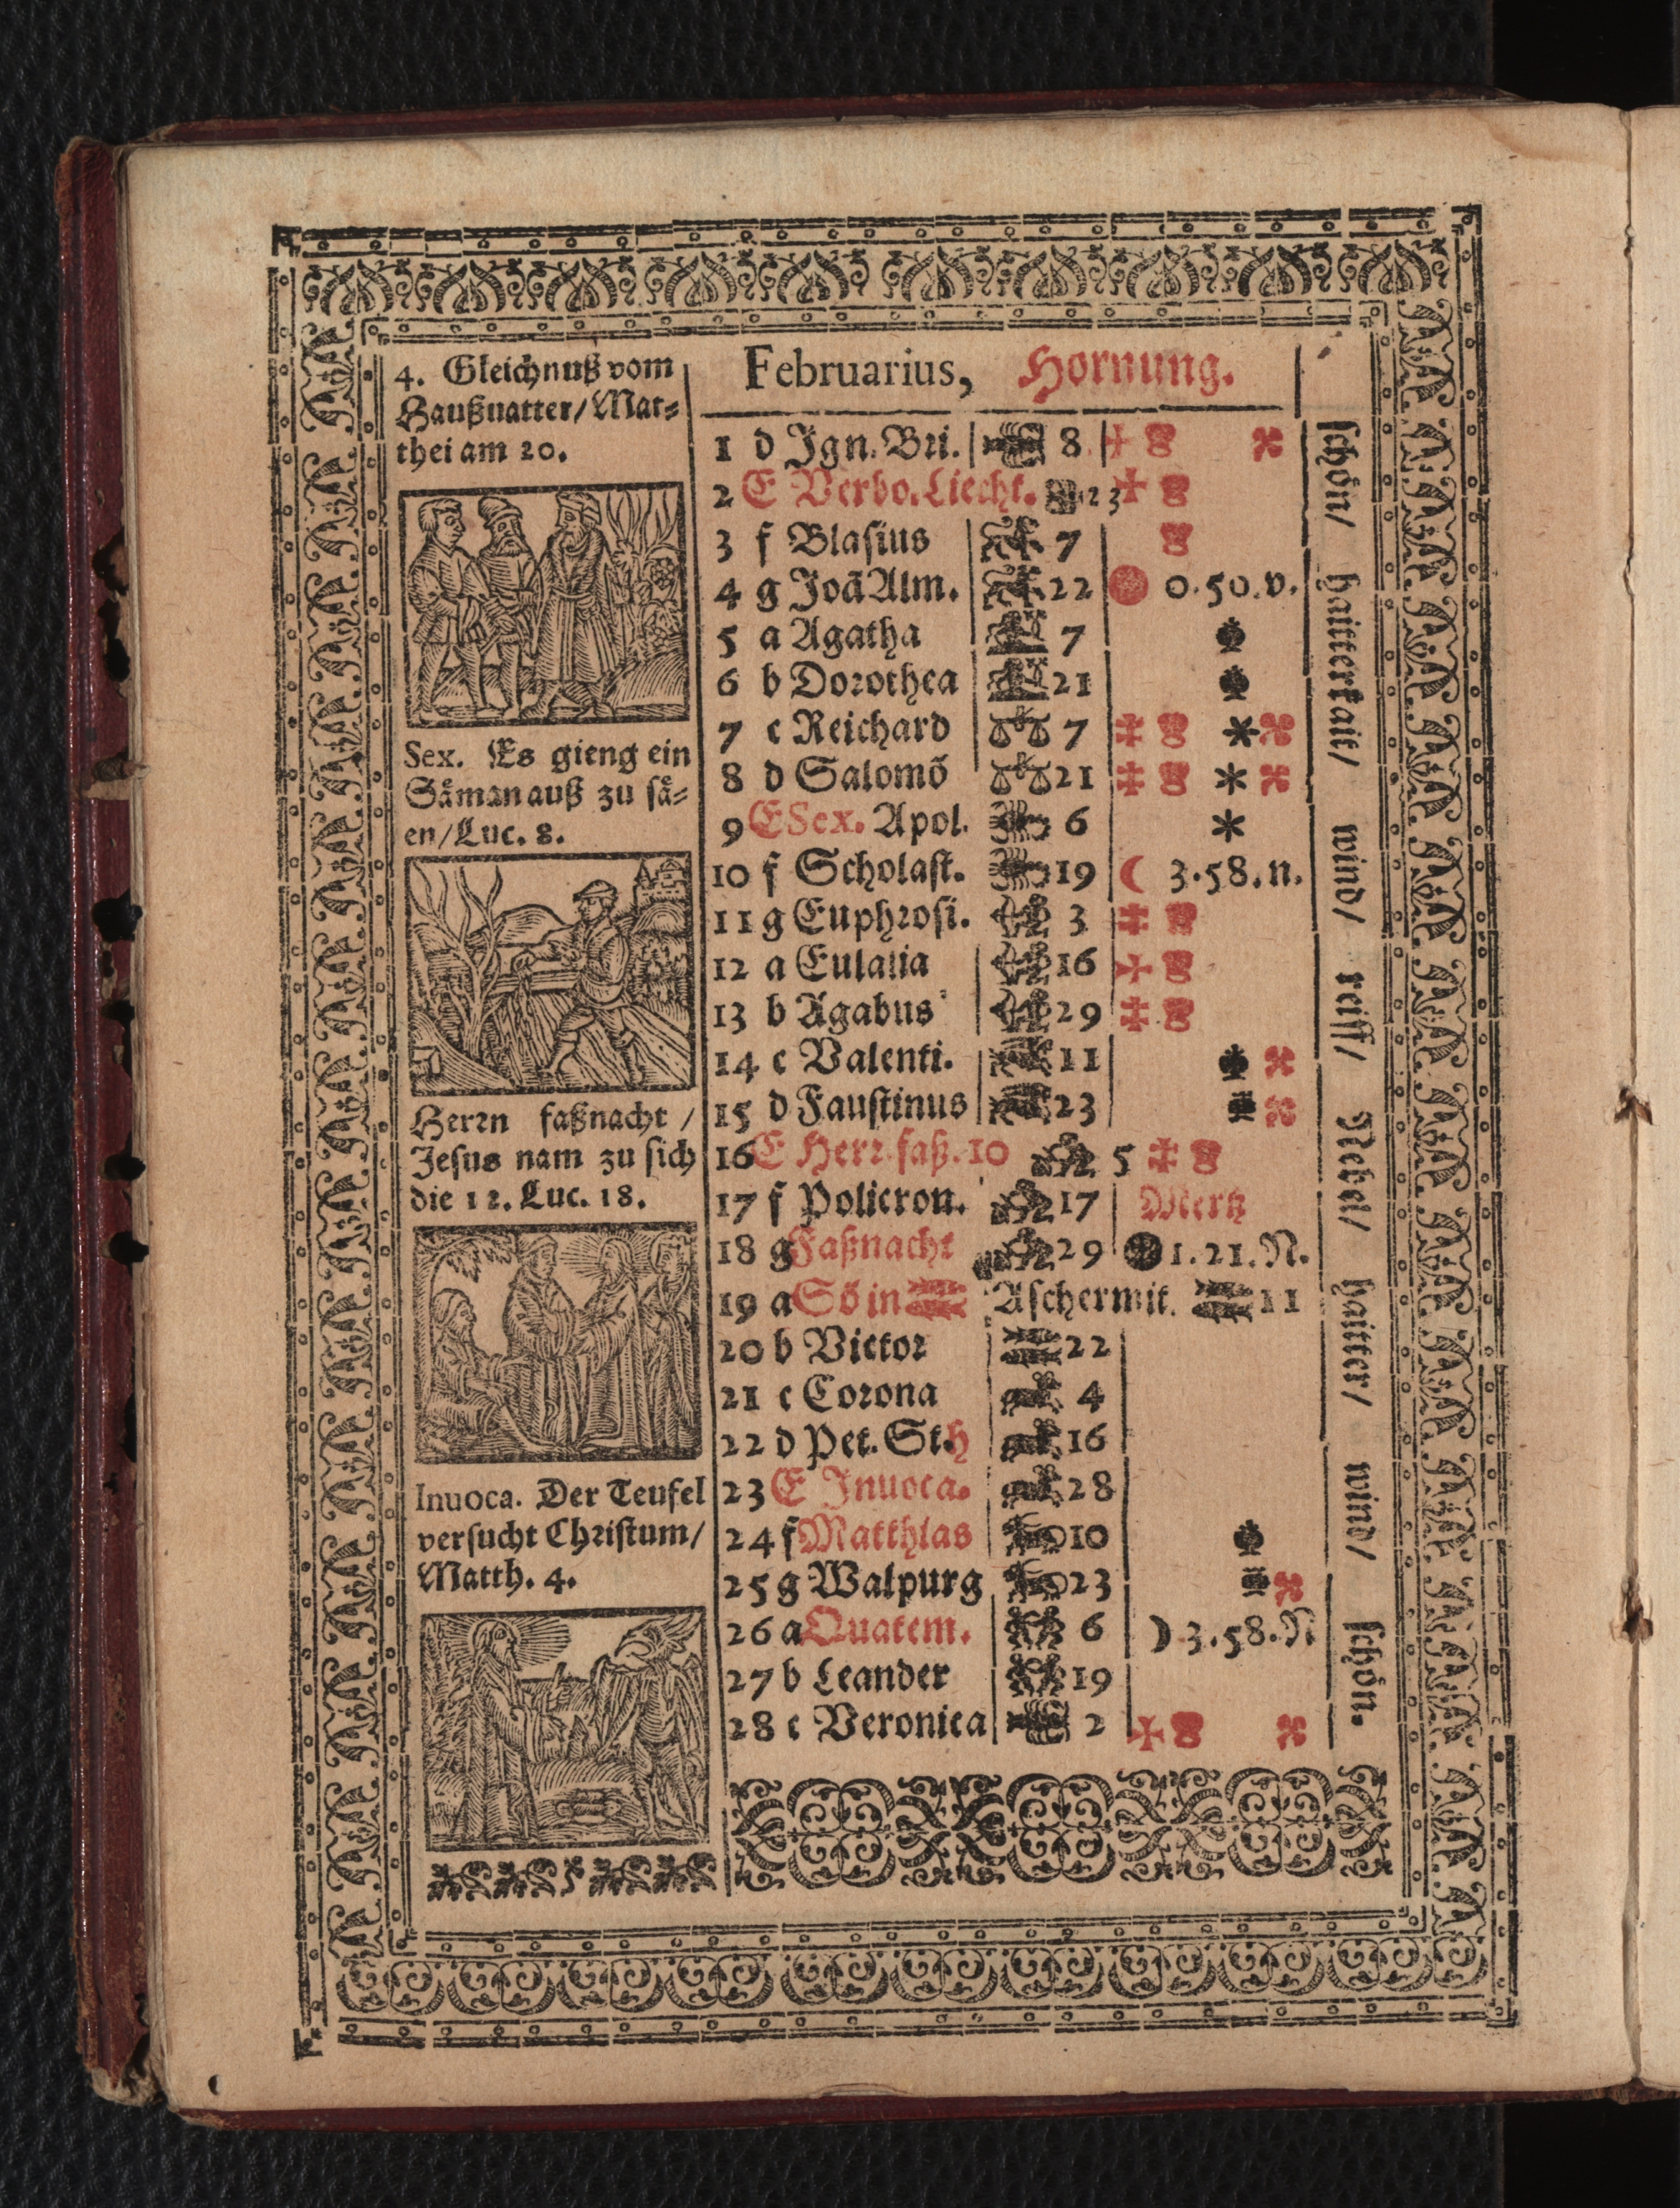 4. Gleichnuß vom
Haußuatter/Mat-
thei am 20.
Sex. Es gieng ein
Såman auß zu så-
en/Luc. 8.
Herrn faßnacht /
Jesus nam zu sich
die 12. Luc. 18.
Inuoca. Der Teufel
versucht Christum/
Matth. 4.
Februarius, Hornung.
1 d Ign. Bri. 8
2 E Verbo. Liecht. 23
3 f Blasius 7
4 g Joã Alm. 22 0.50.v.
5 a Agatha 7
6 b Dorothea 21
7 c Reichard 7
8 d Salomõ 21
9 E Sex. Apol. 6
10 f Scholast. 19 3.58.n.
11 g Euphrosi. 3
12 a Eulalia 16
13 b Agabus 29
14 c Valenti. 11
15 d Faustinus 23
16 E Herr. faß. 10 5
17 f Policron. 17 Mertz
18 g Faßnacht 29 1.21.N.
19 a Sõ in Aschermit. 11
20 b Victor 22
21 c Corona 4
22 d Pet. St. 16
23 E Inuoca. 28
24 f Matthias 10
25 g Walpurg 23
26 a Quatem. 6 3.58.N
27 b Leander 19
28 c Veronica 2
schön/ haitterkait/ wind/ reiff/ Nebel/ haitter/ wind/ schön.